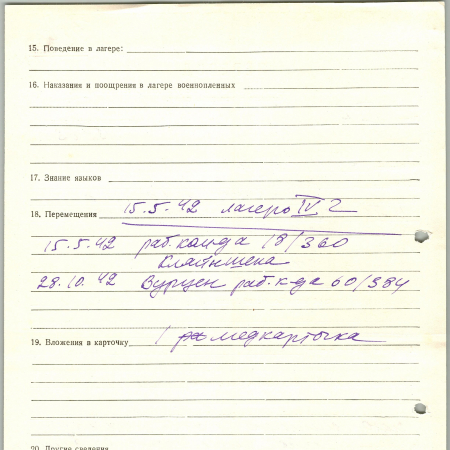 15. Поведение в лагере:
16. Наказания и поощрения в лагере военнопленных
17. Знание языков
18. Перемещения 15.5.42 лагерь IV Г
15.5.42 раб. команда 18/360
Клайншена
28.10.42 Вурцен раб. к-да 60/384
19. Вложения в карточку 1 медкарточка
20. Другие сведения